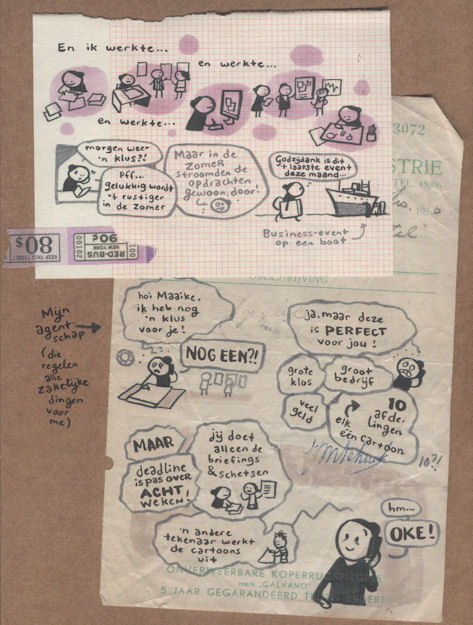 En ik werkte...
en werkte...
en werkte...
morgen weer
'n klus?!
Pff...
gelukkig wordt
't rustiger
in de zomer
Maar in de
ZOMER
stroomden de
opdrachten
gewoon door!
Godzijdank is dit
't laatste event
deze maand...
Business-event
op een boot
80¢
KEEP THIS TICKET
RED-BUS
NEW YORK
90¢
00102
001
3072
STRIE
195
OMSCHRIJVING
Mijn
agent-
schap
(die
regelen
alle
zakelijke
dingen
voor
me)
hoi Maaike,
ik heb nog
'n klus
voor je!
NOG EEN?!
ja, maar deze
is PERFECT
voor jou!
grote
klus
groot
bedrijf
veel
geld
10
afde-
lingen
elk
één cartoon
10?!
MAAR
deadline
is pas over
ACHT
weken!
jij doet
alleen de
briefings
& schetsen
'n andere
tekenaar werkt
de cartoons
uit
hm...
OKE!
ONVERWEERBARE KOPERR
merk „GALVANO"
5 JAAR GEGARANDEERD